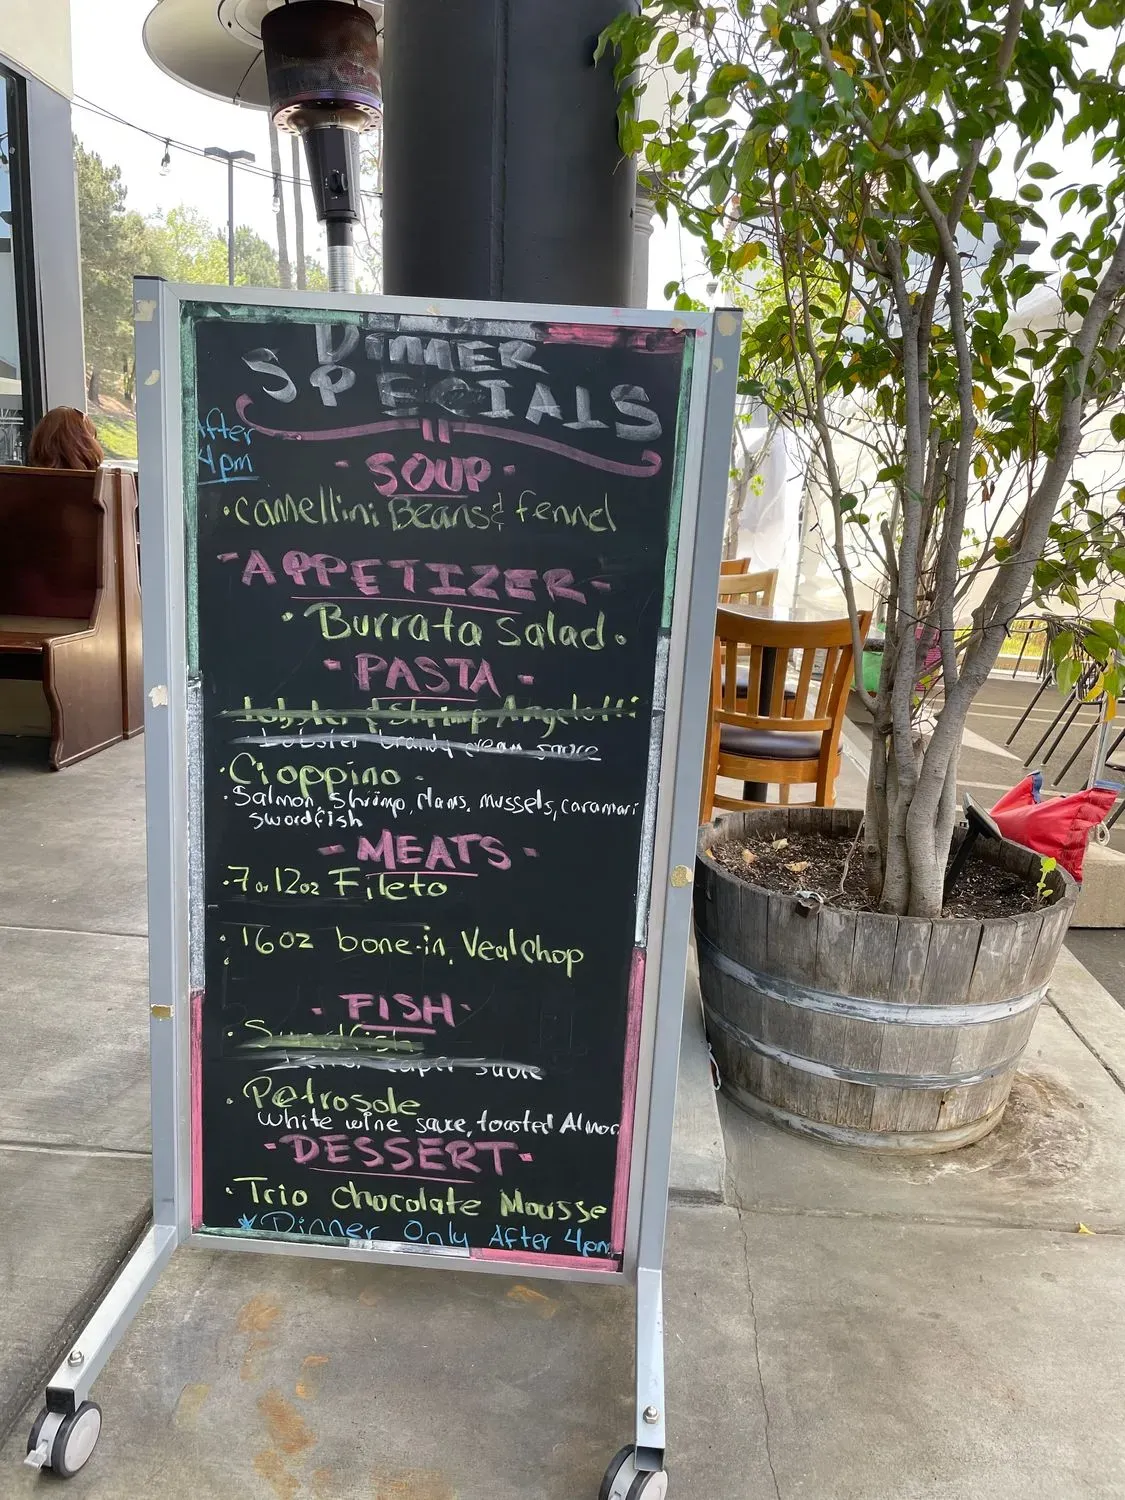 Dinner
SPECIALS
After
4pm
- SOUP -
· Camellini Beans & fennel
- APPETIZER -
· Burrata Salad ·
- PASTA -
Lobster & Shrimp Angelotti
Lobster brandy cream sauce
· Cioppino -
· Salmon, Shrimp, Clams, mussels, caramari
swordfish
- MEATS -
· 7 or 12oz Fileto
· 16oz bone-in, Veal Chop
- FISH -
· Swordfish
caper sauce
· Petrosole
White wine sauce, toasted Almon
- DESSERT -
· Trio chocolate Mousse
* Dinner Only After 4pm